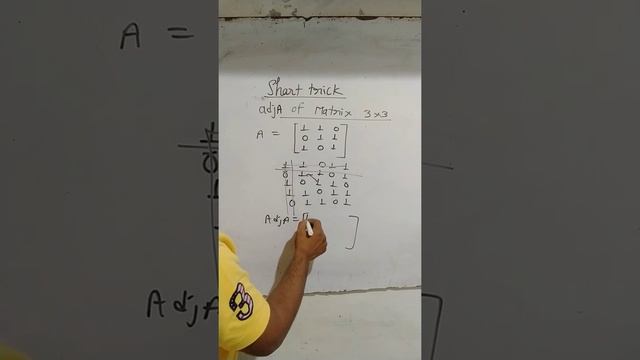 Short trick
adjA of Matrix 3×3
A = [1 1 0
0 1 1
1 0 1]
1 1 0 1 1
0 1 1 0 1
1 0 1 1 0
1 1 0 1 1
0 1 1 0 1
AdjA = [ ]
A =
AdjA